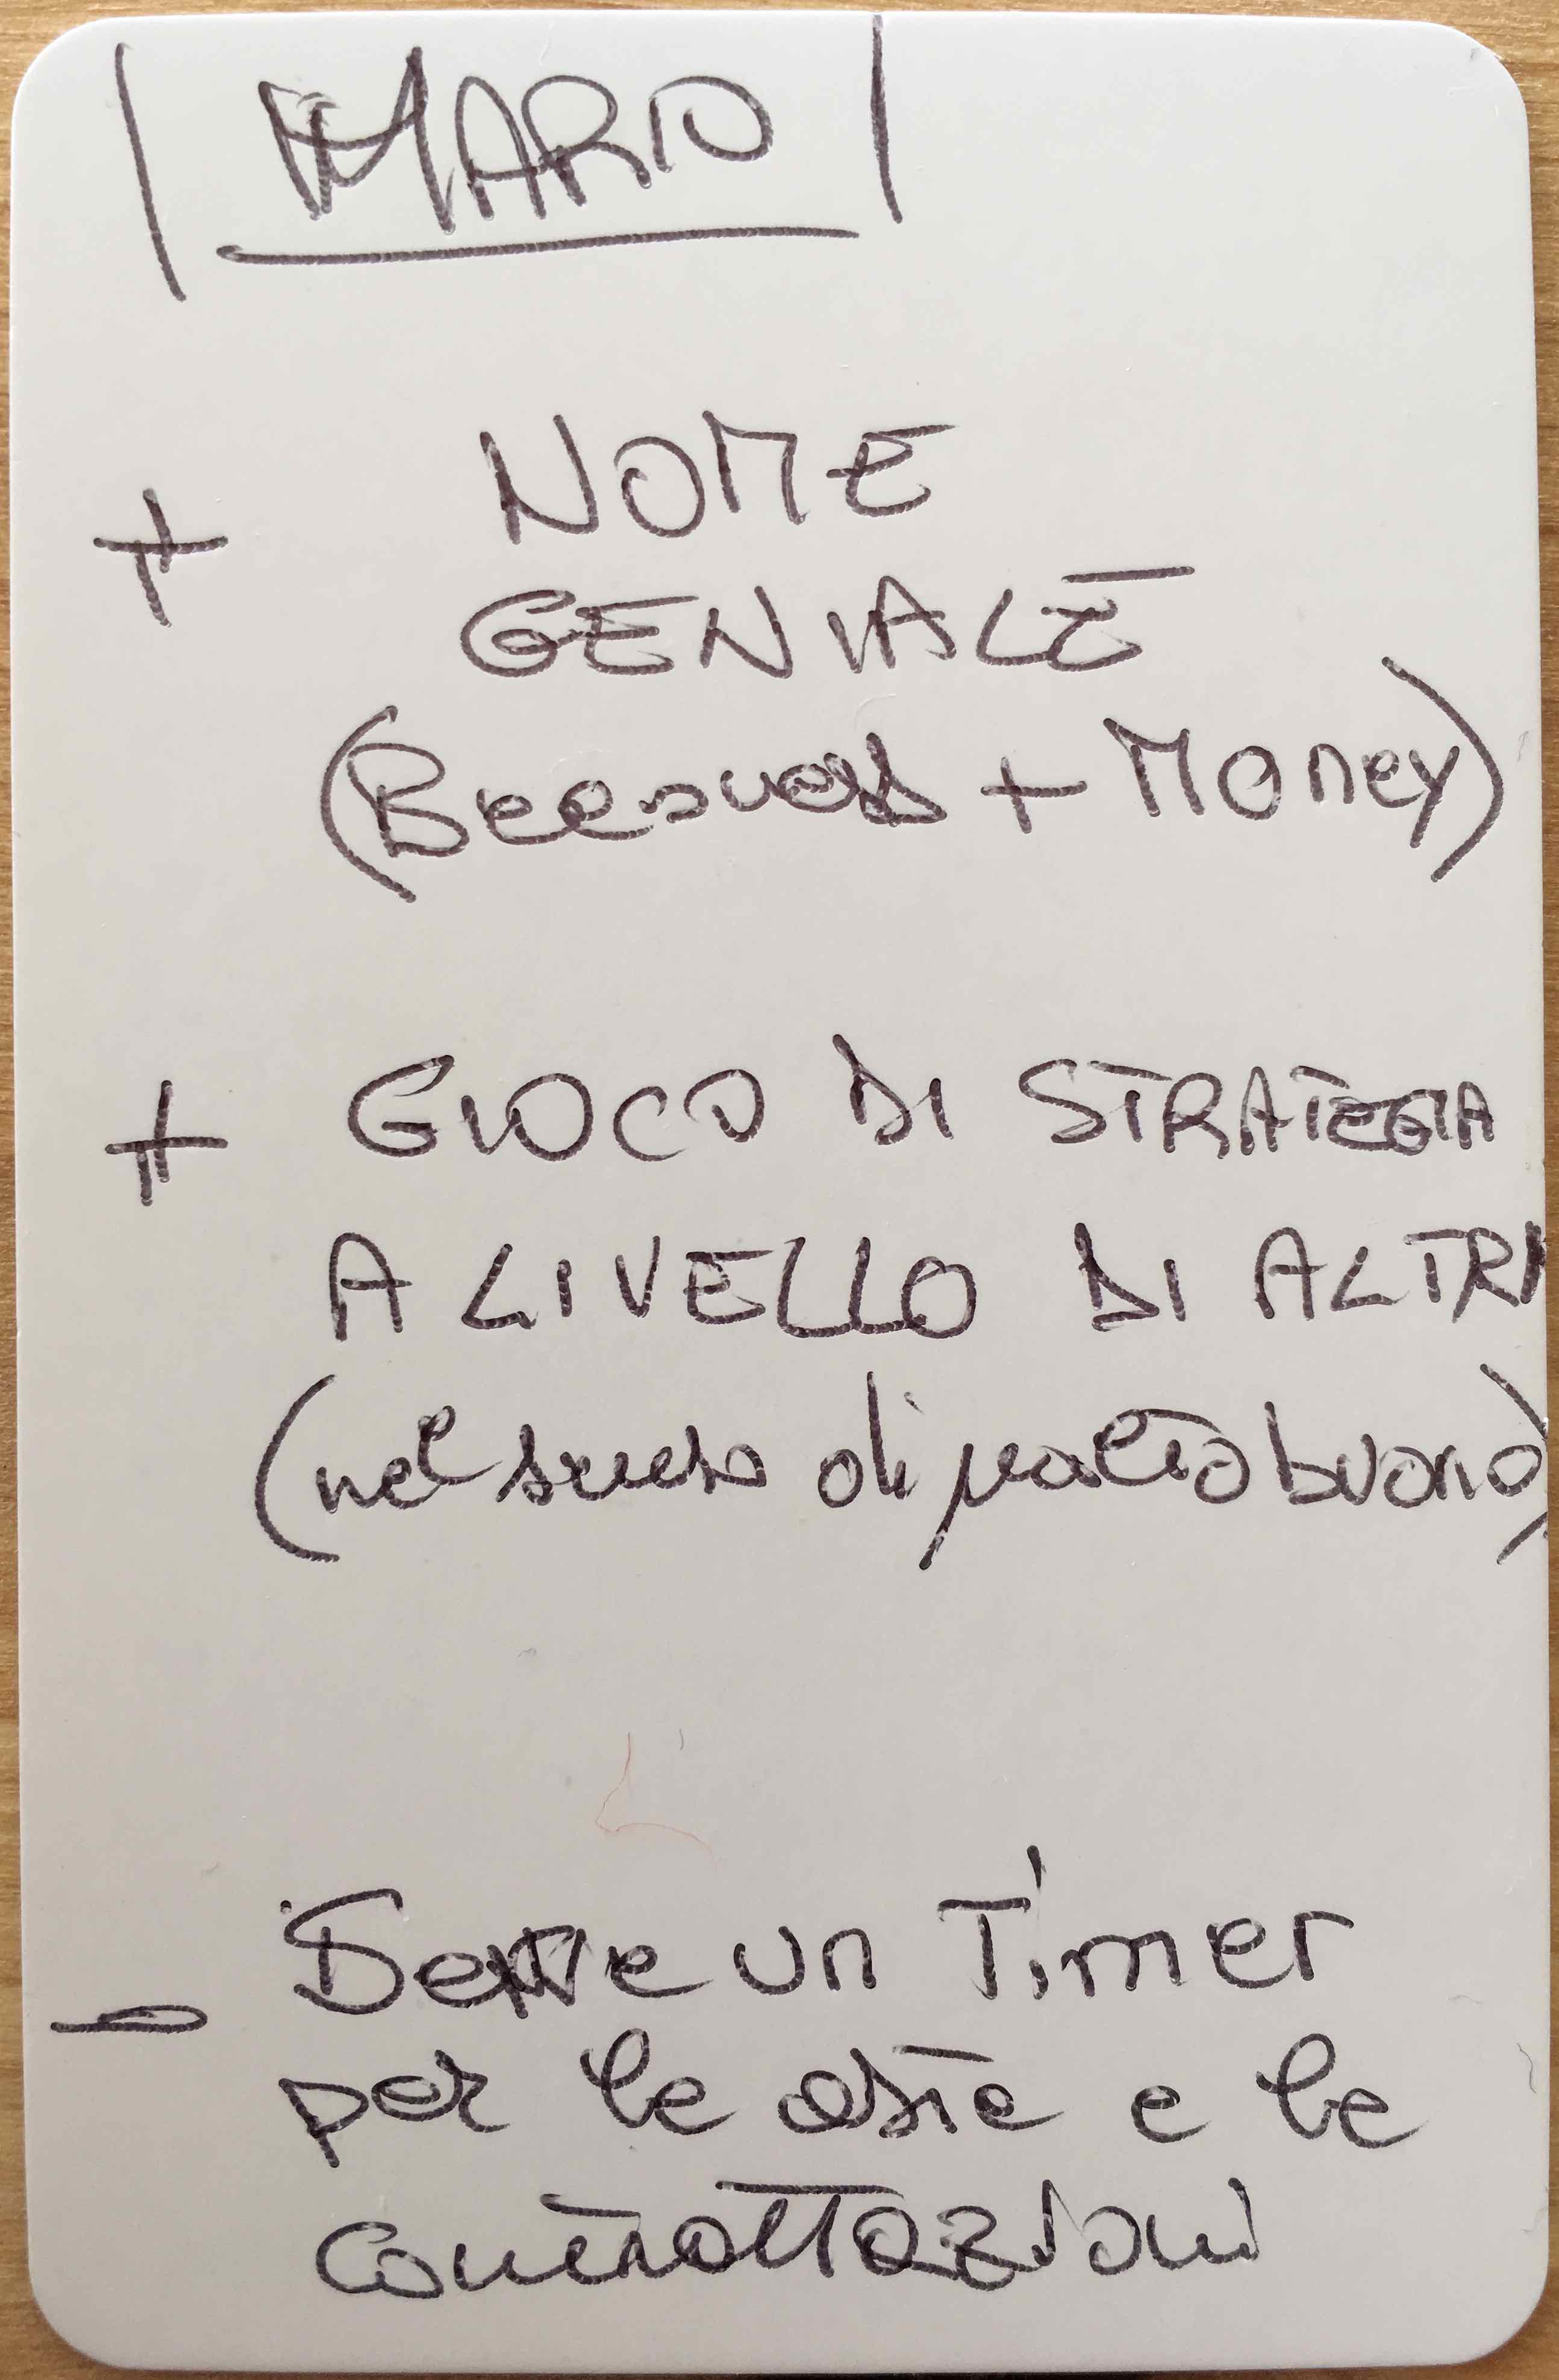 | MARIO |
+ NOME
GENIALE
(Beesness + Money)
+ GIOCO DI STRATEGIA
A LIVELLO DI ALTRI
(nel senso di molto buono)
- Serve un Timer
per le aste e le
contrattazioni